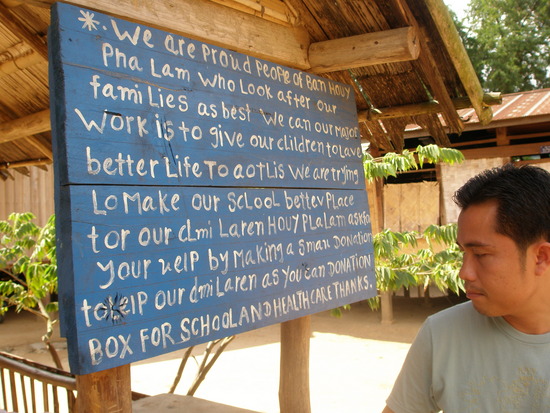 * We are proud people of Ban Houy
Pha Lam who look after our
families as best we can our major
work is to give our children to lave
better Life To aotlis we are trying
Lo make our school better place
tor our clmi Laren Houy Plalam ask to
your uelp by making a small donation
to elp our dmi Laren as you can DONATION
BOX FOR SCHOOL AND HEALTH CARE THANKS.